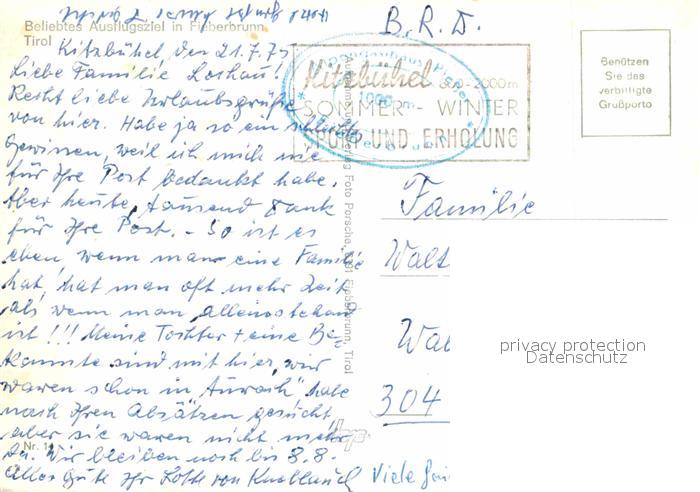 B. R. D.
Beliebtes Ausflugsziel in Fieberbrunn,
Tirol
Kitzbühel, den 21.7.75
Liebe Familie
Recht liebe Urlaubsgrüße
von hier. Habe ja so ein schlechtes
Gewissen, weil ich mich nie
für Ihre Post bedankt habe.
Aber heute, tausend Dank
für Ihre Post. - So ist es
eben, wenn man eine Familie
hat, hat man oft mehr Zeit
als wenn man alleinstehend
ist!!! Meine Tochter + eine Be-
kannte sind mit hier, wir
waren schon in habe
nach Ihren Absätzen gesucht,
aber sie waren nicht mehr
da. Wir bleiben noch bis 3.8.
Alles Gute Ihr Lotte von
Viele
Nr. 1
Kitzbühel 800-2000m
SOMMER - WINTER
SPORT UND ERHOLUNG
Benützen
Sie das
verbilligte
Grußporto
Foto Porsche, Fieberbrunn, Tirol
Familie
Walt
Wal
304
privacy protection
Datenschutz